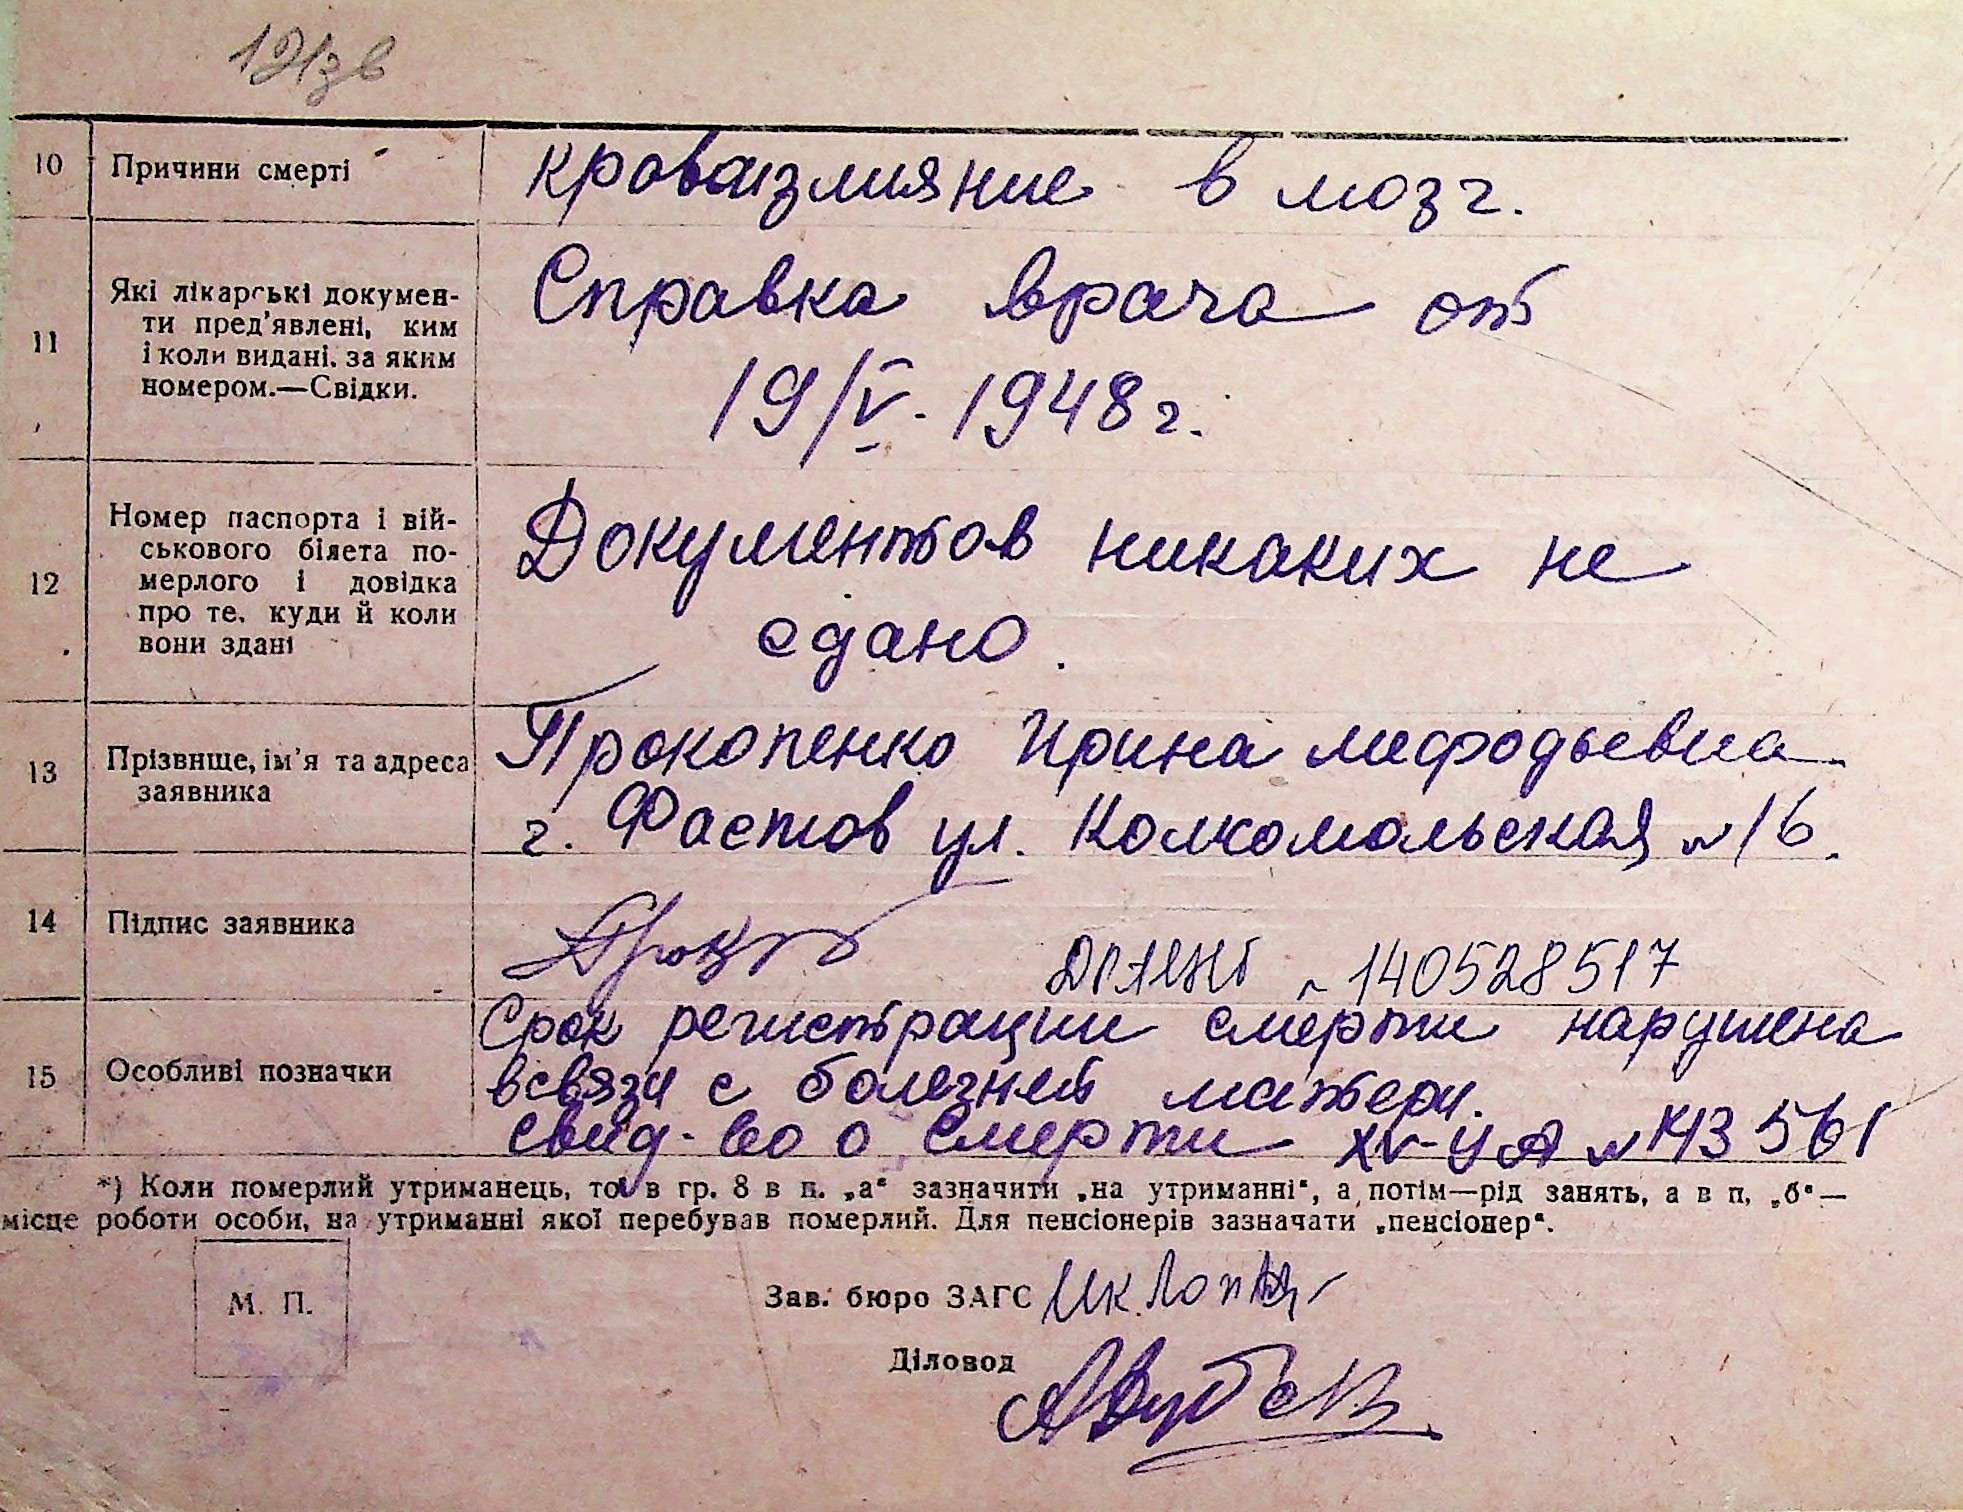 121зв
10 Причини смерті кроваизлияние в мозг.
11 Які лікарські докумен-
ти пред'явлені, ким
і коли видані, за яким
номером.—Свідки.
Справка врача от
19/V. 1948 г.
12 Номер паспорта і вій-
ськового білета по-
мерлого і довідка
про те, куди й коли
вони здані
Документов никаких не
сдано.
13 Прізвище, ім'я та адреса
заявника
Прокопенко Ирина мефодьевна
г. Фастов ул. Комсомольская №16.
14 Підпис заявника
140528517
15 Особливі позначки
Срок регистрации смерти нарушена
всвязи с болезней матери.
свид-во о смерти XV-УА №143561
*) Коли померлий утриманець, то в гр. 8 в п. „а“ зазначити „на утриманні“, а потім—рід занять, а в п, „б“—
місце роботи особи, на утриманні якої перебував померлий. Для пенсіонерів зазначати „пенсіонер“.
М. П.
Зав. бюро ЗАГС
Діловод